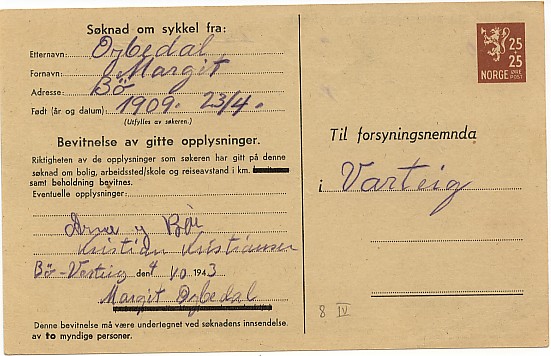 Søknad om sykkel fra:
Etternavn: Orbedal
Fornavn: Margit
Adresse: Bö
Født (år og datum): 1909. 23/4.
(Utfylles av søkeren.)
Bevitnelse av gitte opplysninger.
Riktigheten av de opplysninger som søkeren har gitt på denne
søknad om bolig, arbeidssted/skole og reiseavstand i km.
samt beholdning bevitnes.
Eventuelle opplysninger:
Bör
Kristian Kristiansen
Bö-Varteig den 4/10 1943
Margit Orbedal
Denne bevitnelse må være undertegnet ved søknadens innsendelse.
av to myndige personer.
25
+
25
NORGE ØRE
POST
Til forsyningsnemnda
i Varteig
8 IV